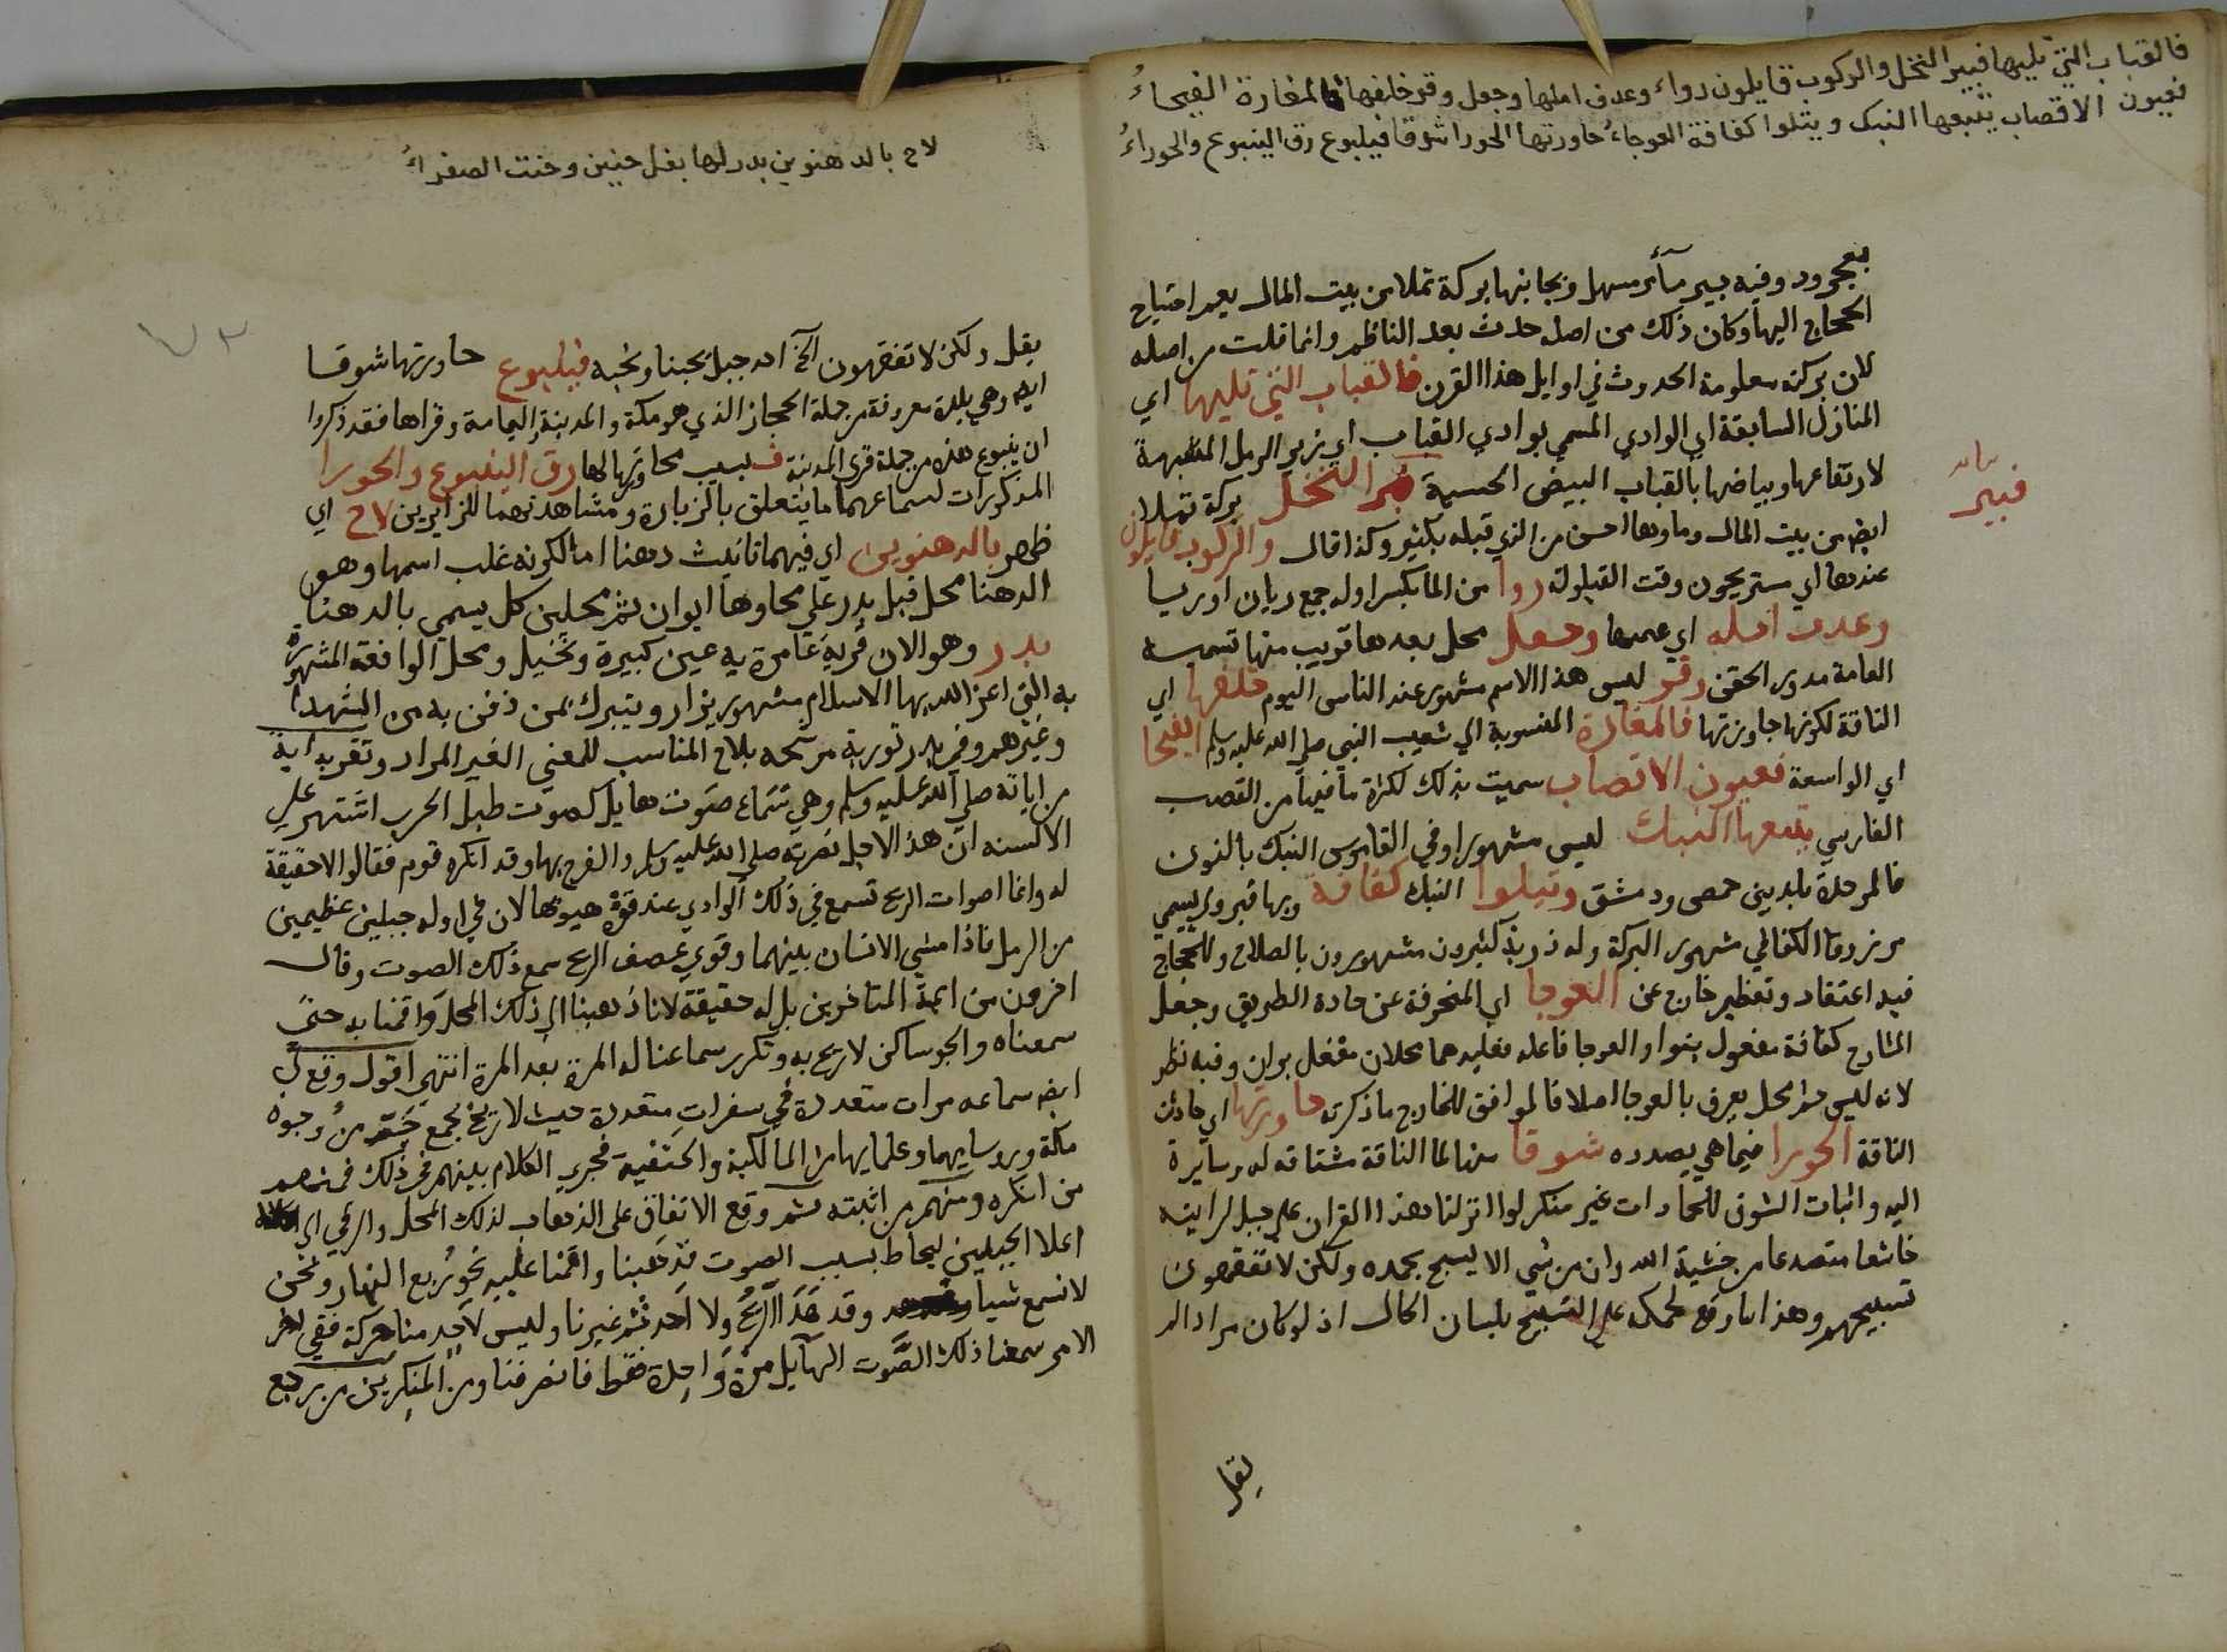 فالقباب التي تليها فبير النخل والركوب قايلون رواء وعدت ايلها وحقل وقر خلفها فالمغارة الفيحاءُ
فعيون الاقصاب يتبعها النبك ويتلوا كفافة العوجاءُ حاورتها الحورا شوقا فينبوع رق الينبوع والحوراءُ
بعجرود وفيه بير ماءٌ مسهل وبجانبها بركة تملا من بيت المال بعد احتياج
الحجاج اليها وكان ذلك من اصله حدث بعد الناظم وانما قلت من اصله
لان بركته معلومة الحدوث في اوايل هذا القرن فالقباب التي تليها اي
المنازل السابقة اي الوادي المسمي بوادي القباب اي بزبي الرمل المشبهة
لارتفاعها وبياضها بالقباب البيض الحسية فبير النخل بركة تملا
بيانه
فبير
ايضا من بيت المال وماوها احسن من الذي قبله بكثير وكذا قال والركوب قايلون
عندها اي مستريحون وقت القيلولة روا من الما بكسر اوله جمع ريان او ريا
وعدت ايله اي عمدها وحقل محل بعدها قريب منها تسميه
العامة مدور الحقن وقر ليس هذا الاسم مشهور عند الناس اليوم خلفها اي
الناقة لكونها جاوزتها فالمغارة المنسوبة الي شعيب النبي صلي الله عليه وسلم الفيحا
اي الواسعة فعيون الاقصاب سميت بذلك لكثرة ما فيها من القصب
الفارسي يتبعها النبك ليس مشهورا وفي القاموس النبك بالنون
فالمرحلة بلد بين حمص ودمشق ويتلوا النبك كفافة وبها قبر ولي يسمي
مرزوقا الكفافي مشهور البركة وله ذرية كثيرون مشهورون بالصلاح وللحجاج
فيه اعتقاد وتعظيم خارج عن العوجا اي المنحرفة عن جادة الطريق وجعل
الشارح كفافة مفعول يتلوا والعوجا فاعله فعليه هما محلان منفصلان وفيه نظر
لانه ليس ثم محل يعرف بالعوجا اصلا فالموافق للخارج ما ذكرته حاورتها اي حادثت
الناقة الحورا فيما هي بصدده شوقا منها لما الناقة مشتاقه له وسايرة
اليه واثبات الشوق للجمادات غير منكر لو انزلنا هذا القران علي جبل لرايته
خاشعا متصدعا من خشية الله وان من شي الا يسبح بحمده ولكن لا تفقهون
تسبيحهم وهذا مما رفع لحمله علي التسبيح بلسان الحال اذ لو كان مراد الم
يقل
لاح بالدهنوين بدر لها بعد حنين وحنت الصفراءُ
يقل ولكن لا تفقهون الخ احد جبل يحبنا ونحبه فينبوع حاورتها شوقا
ايضا وهي بلدة معروفة من جملة الحجاز الذي هو مكة والمدينة واليمامة وقراها فقد ذكروا
ان ينبوع هذه من جملة قري المدينة فبسبب محاورتها لها رق الينبوع والحورا
المذكورات لسماعهما ما يتعلق بالزيارة ومشاهدتهما للزايرين لاح اي
ظهر بالدهنوين اي فيهما تانيث دهنا اما لكونه غلب اسمها وهو
الدهنا محل قبل بدر علي مجاورها ايوان ثم محلين كل يسمي بالدهنا
بدر وهو الان قرية عامرة به عين كبيرة ونخيل ومحل الواقعة المشهورة
به التي اعز الله بها الاسلام مشهور يزار ويتبرك بمن دفن به من الشهدا
وغيرهم وفي بدر تورية مرشحه بلاح المناسب للمعني الغير المراد وتقربه اية
من اياته صلي الله عليه وسلم وهي سماع صوت هايل كصوت طبل الحرب اشتهر علي
الالسنه ان هذا لاجل نصرته صلي الله عليه وسلم والفرح بها وقد انكره قوم فقالوا لا حقيقة
له وانما اصوات الريح تسمع في ذلك الوادي عند قوة هبوبها لان في اوله جبلين عظيمين
من الرمل فاذا مشي الانسان بينهما وقوي عصف الريح سمع ذلك الصوت وقال
اخرون من ايمة المتاخرين بل له حقيقة لانا ذهبنا الي ذلك المحل واقمنا به حتي
سمعناه والجو ساكن لا ريح به وتكرر سماعنا له المرة بعد المرة انتهي اقول وقع لي
ايضا سماعه مرات متعددة في سفرات متعددة حيث لا ريح بجمع جَمّ من وجوه
مكة وروسايها وعلمايها من المالكية والحنفية فجري الكلام بينهم في ذلك فمنهم
من انكره ومنهم من اثبته ثم وقع الاتفاق علي الذهاب لذلك المحل والرقي الي
اعلا الجبلين ليحاط بسبب الصوت فذهبنا واقمنا عليه نحو ربع النهار ونحن
لا نسمع شيا وقد هَدَا الريح ولا احد ثم غيرنا وليس لاحد منا حركة ففي اخر
الامر سمعنا ذلك الصوت الهايل مرة واحدة فقط فانصرفنا ومن المنكرين من يرجع